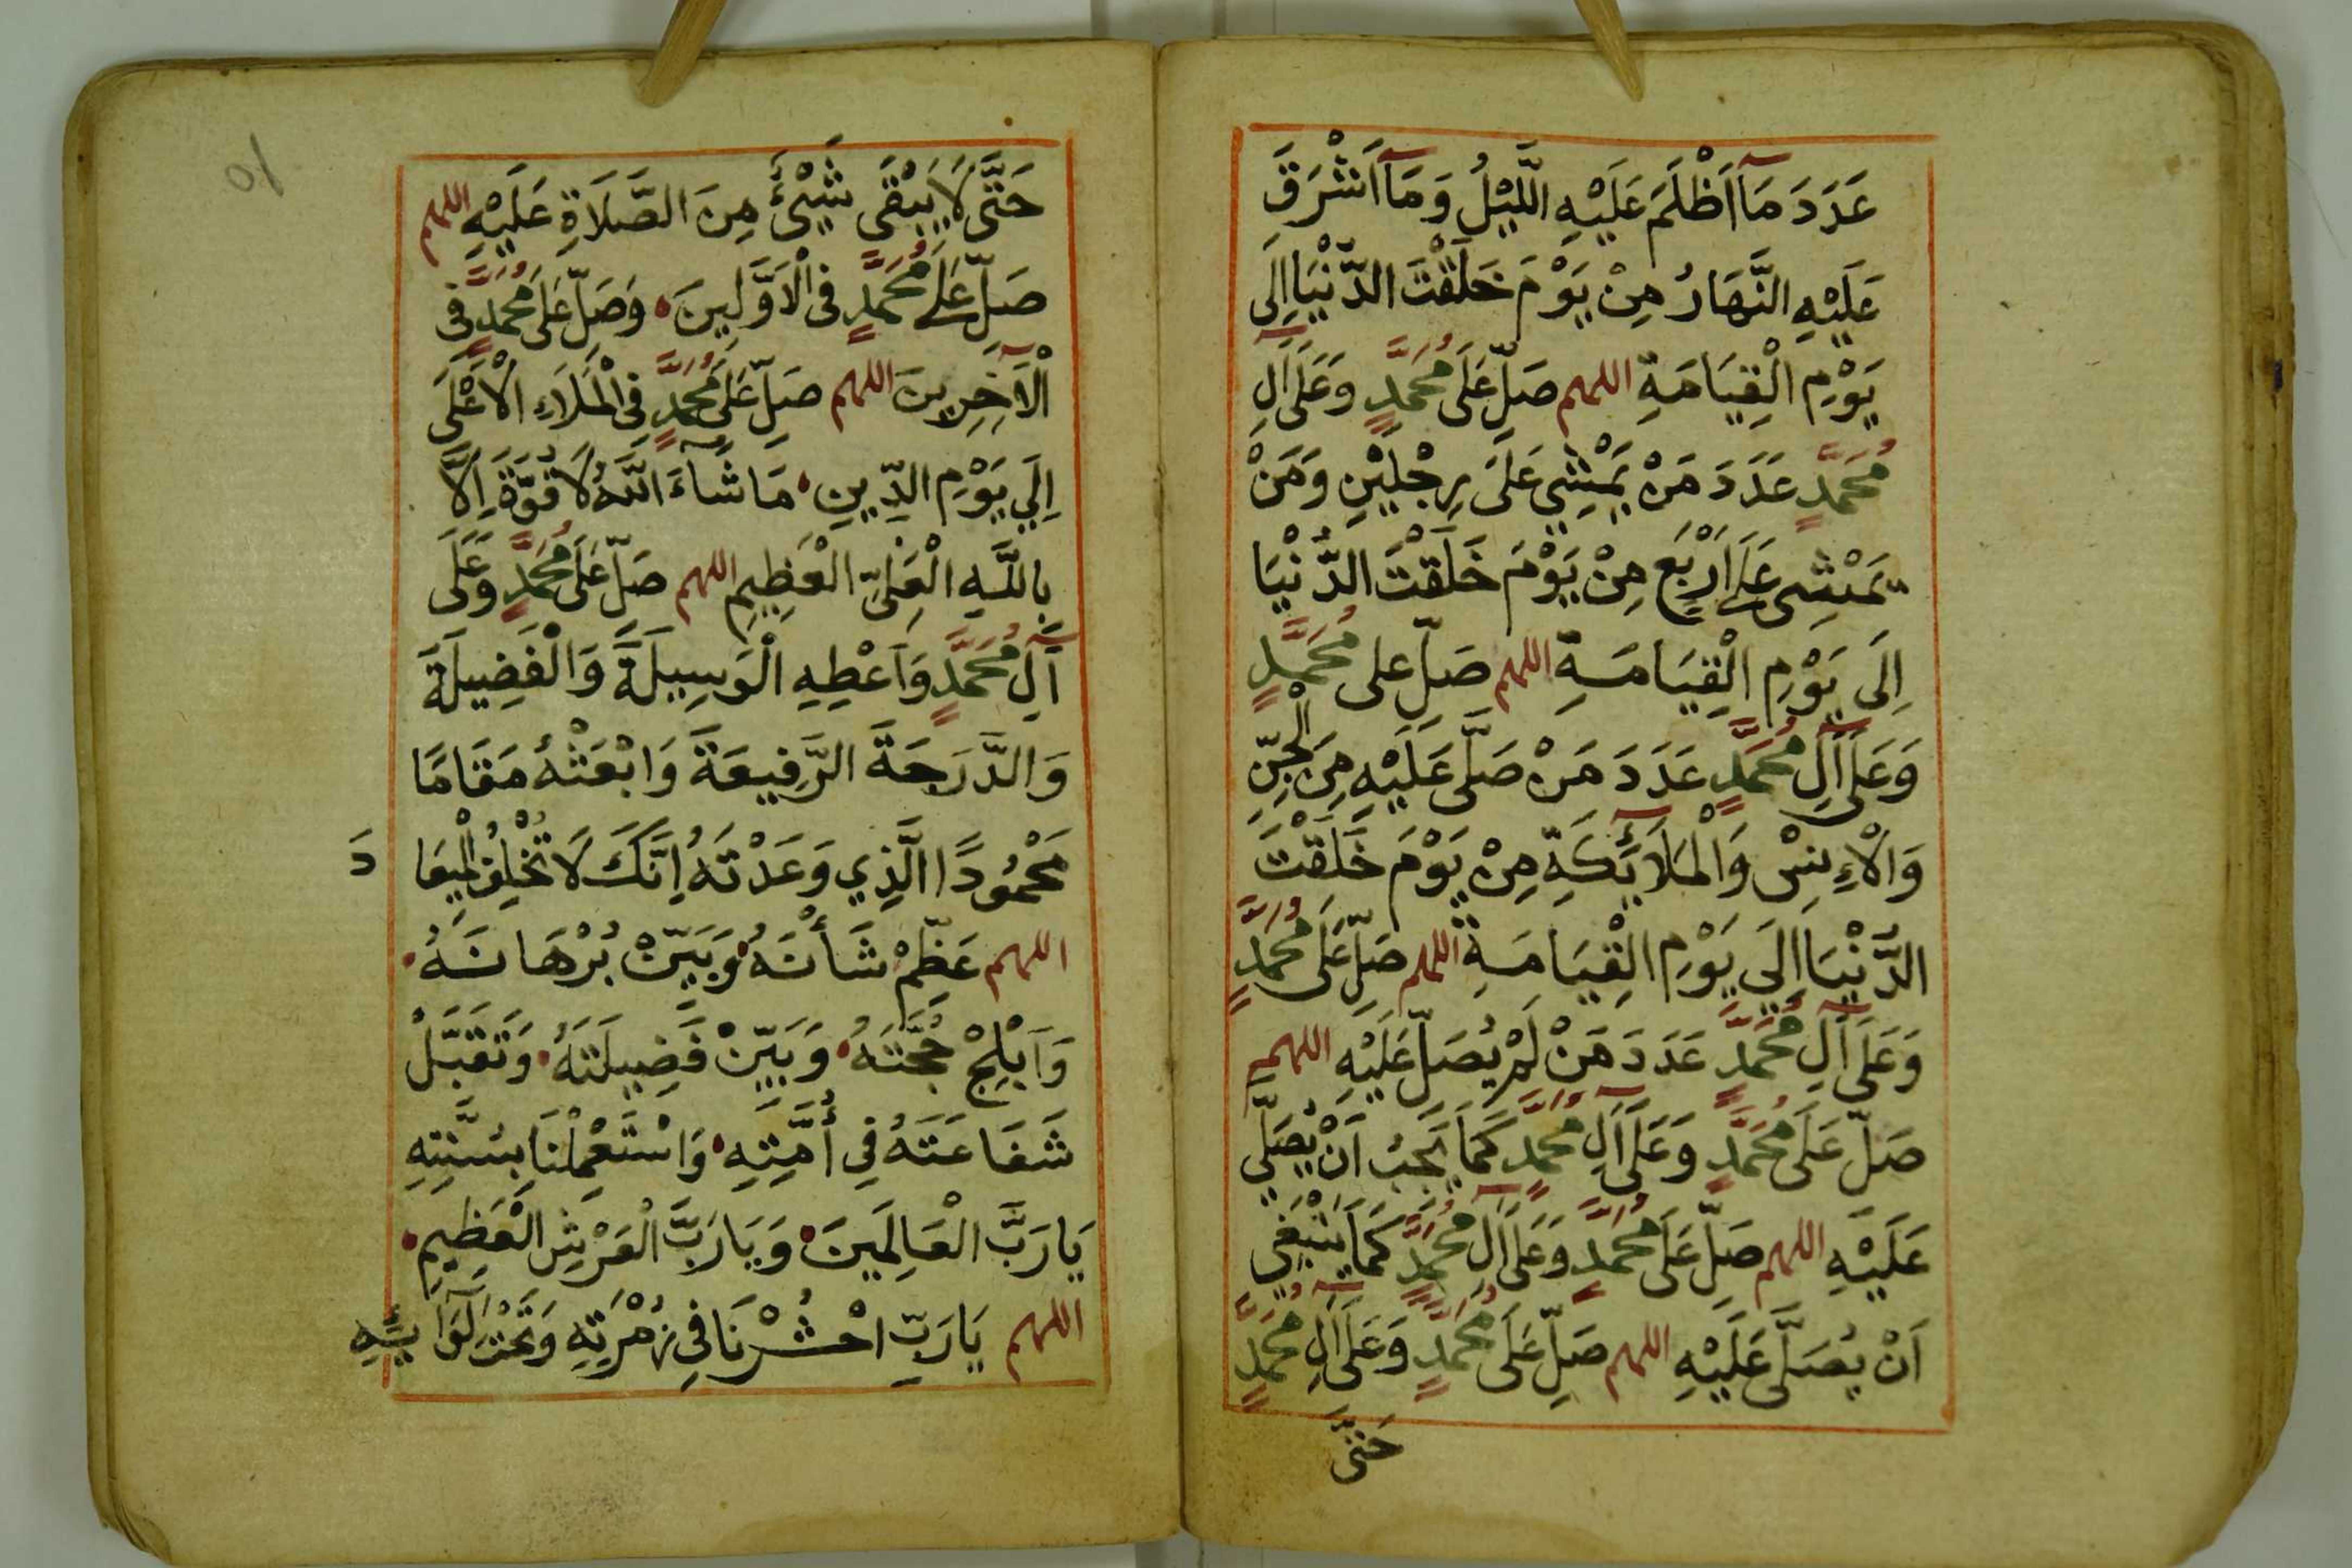 عَدَدَ مَآ اَظْلَمَ عَلَيْهِ الَّليْلُ وَمَآ اَشْرَقَ
عَلَيْهِ النَّهَارُ مِنْ يَوْمَ خَلَقْتَ الدُّنْيَا اِلَى
يَوْمِ الْقِيَامَةِ اللهم صَلِّ عَلَى مُحَمَّدٍ وَعَلَى آلِ
مُحَمَّدٍ عَدَدَ مَنْ يَمْشِي عَلَى رِجْلَيْنِ وَمَنْ
يَمْشِى عَلَى اَرْبَعٍ مِنْ يَوْمَ خَلَقْتَ الدُّنْيَا
اِلَى يَوْمِ الْقِيَامَةِ اللهم صَلِّ على مُحَمَّدٍ
وَعَلَى آلِ مُحَمَّدٍ عَدَدَ مَنْ صَلَّى عَلَيْهِ مِنَ الْجِنِّ
وَالْاِنسْ وَالْمَلَآئِكَةِ مِنْ يَوْمَ خَلَقْتَ
الدُّنْيَا اِلَى يَوْمِ الْقِيَامَةِ اللهم صَلِّ عَلَى مُحَمَّدٍ
وَعَلَى آلِ مُحَمَّدٍ عَدَدَ مَنْ لَمْ يُصَلِّ عَلَيْهِ اللهم
صَلِّ عَلَى مُحَمَّدٍ وَعَلَى آلِ مُحَمَّدٍ كَمَا يَجِبُ اَنْ يُصَلَّي
عَلَيْهِ اللهم صَلِّ عَلَى مُحَمَّدٍ وَعَلَى آلِ مُحَمَّدٍ كَمَا يَنْبَغِي
اَنْ يُصَلَّى عَلَيْهِ اللهم صَلِّ عَلَى مُحَمَّدٍ وَعَلَى آلِ مُحَمَّدٍ
حَتَّى
10
حَتَّى لَا يَبْقَى شَيْئٌ مِنَ الصَّلَاةِ عَلَيْهِ اللهم
صَلِّ عَلَى مُحَمَّدٍ فى الْاَوَّلِينَ وَصَلِّ عَلَى مُحَمَّدٍ فى
الْآخِرِينَ اللهم صَلِّ عَلَى مُحَمَّدٍ فِى الْمَلَاءِ الْاَعْلَى
اِلَي يَوْمِ الدِّينِ مَا شَآءَ اللهُ لَا قُوَّةَ اِلَّا
بِاللَّهِ الْعَلِىِّ الْعَظِيمِ اللهم صَلِّ عَلَى مُحَمَّدٍ وَعَلَى
آلِ مُحَمَّدٍ وَاَعْطِهِ الْوَسِيلَةَ وَالْفَضِيلَةَ
وَالدَّرَجَةَ الرَّفِيعَةَ وَابْعَثْهُ مَقَامًا
مَحْمُودًا الَّذِي وَعَدْتَهُ اِنَّكَ لَا تُخْلِفُ الْمِيعَا دَ
اللهم عَظِّمْ شَأْنَهُ وَبَيِّنْ بُرْهَانَهُ
وَاَبْلِجْ حُجَّتَهُ وَبَيِّنْ فَضِيلَتَهُ وَتَقَبَّلْ
شَفَاعَتَهُ فِي أُمَّتِهِ وَاسْتَعْمِلْنَا بِسُنَّتِهِ
يَا رَبَّ الْعَالَمِينَ وَيَا رَبَّ الْعَرْشِ الْعَظِيمِ
اللهم يَا رَبِّ احْشُرْنَا فِي زُمْرَتِهِ وَتَحْتَ لِوَآئِهِ